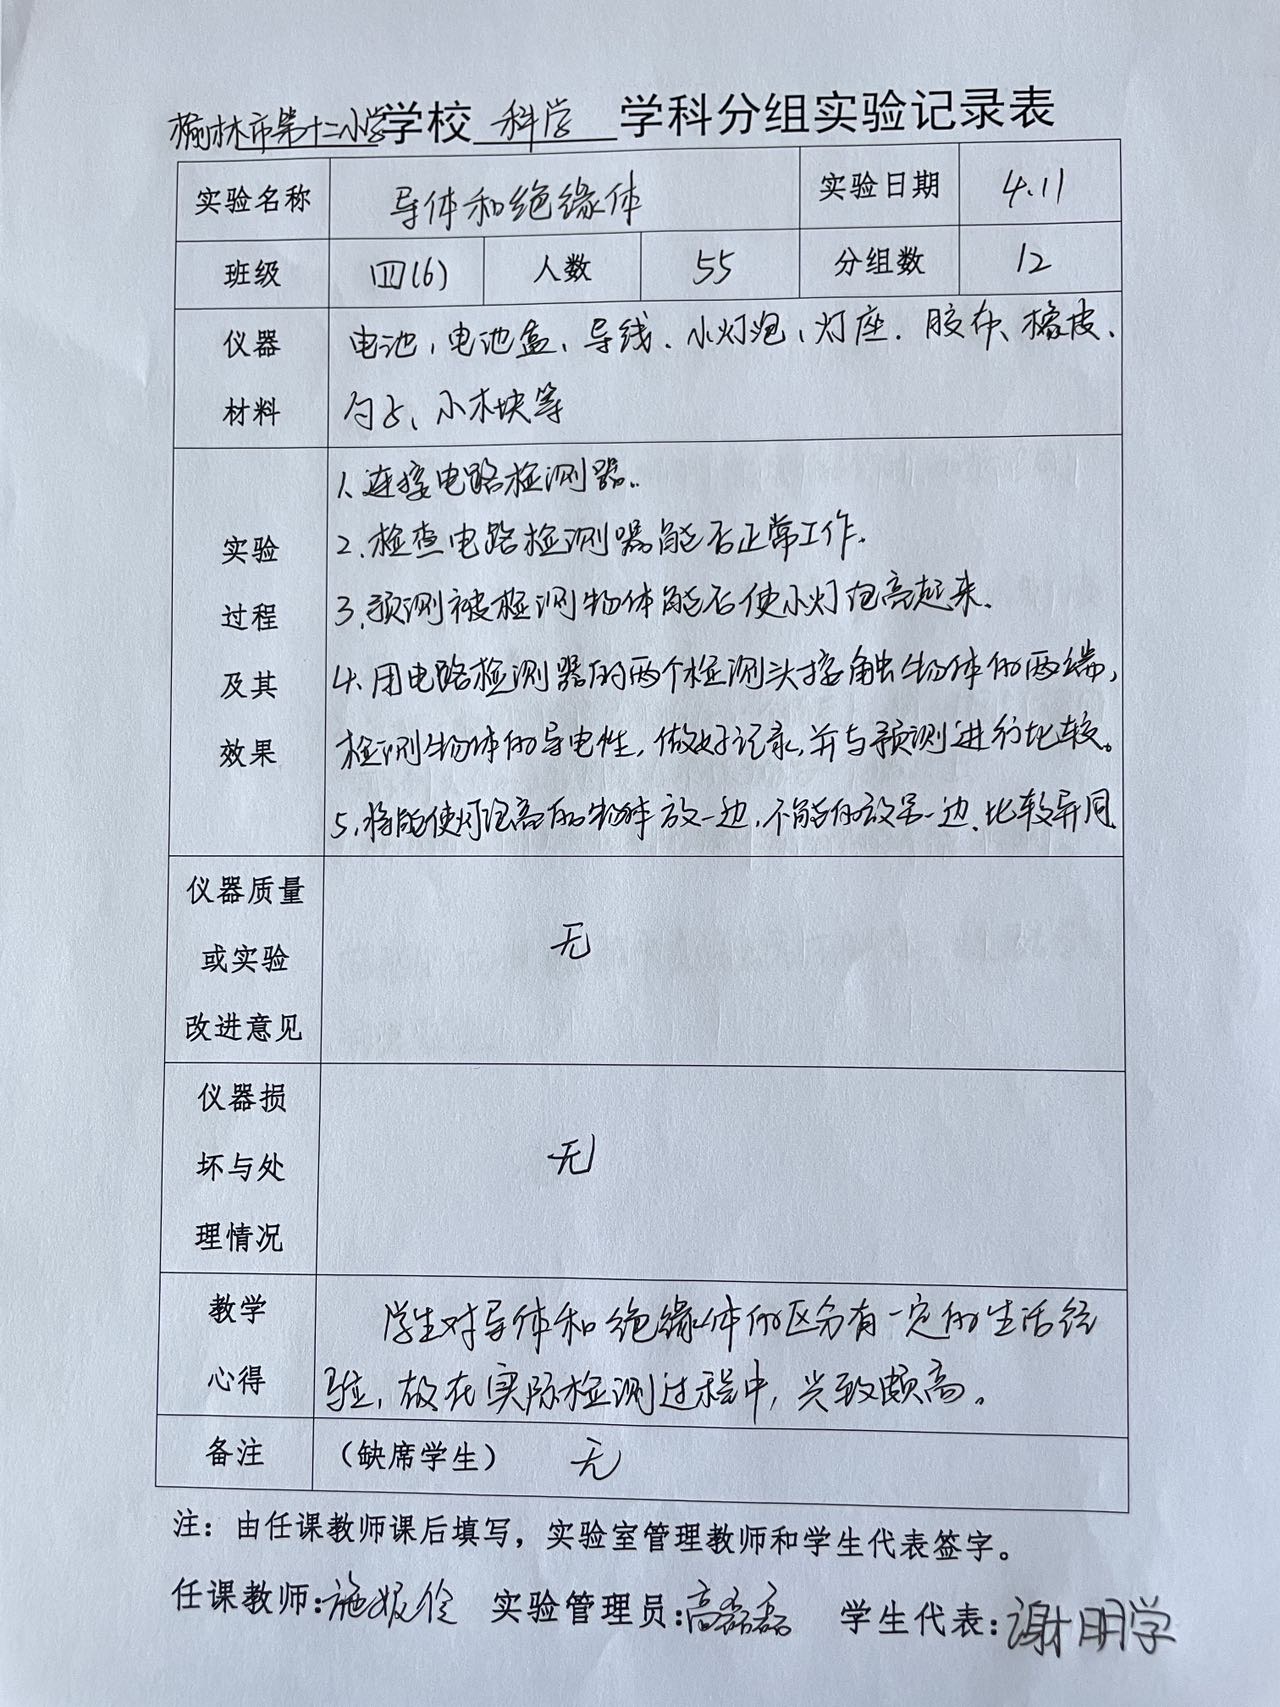 榆林市第十二小学学校 科学 学科分组实验记录表
实验名称 导体和绝缘体 实验日期 4.11
班级 四(6) 人数 55 分组数 12
仪器 电池、电池盒、导线、小灯泡、灯座、胶布、橡皮、
材料 勺子、小木块等
1、连接电路检测器。
2、检查电路检测器能否正常工作.
实验
3、预测被检测物体能否使小灯泡亮起来.
过程
4、用电路检测器的两个检测头接触物体的两端,
及其
检测物体的导电性,做好记录,并与预测进行比较。
效果
5、将能使灯泡亮的物体放一边,不能的放另一边、比较异同
仪器质量
或实验 无
改进意见
仪器损
坏与处 无
理情况
教学 学生对导体和绝缘体的区分有一定的生活经
心得 验,故在实际检测过程中,兴致颇高。
备注 (缺席学生) 无
注:由任课教师课后填写,实验室管理教师和学生代表签字。
任课教师:施 实验管理员:高磊磊 学生代表:谢明学